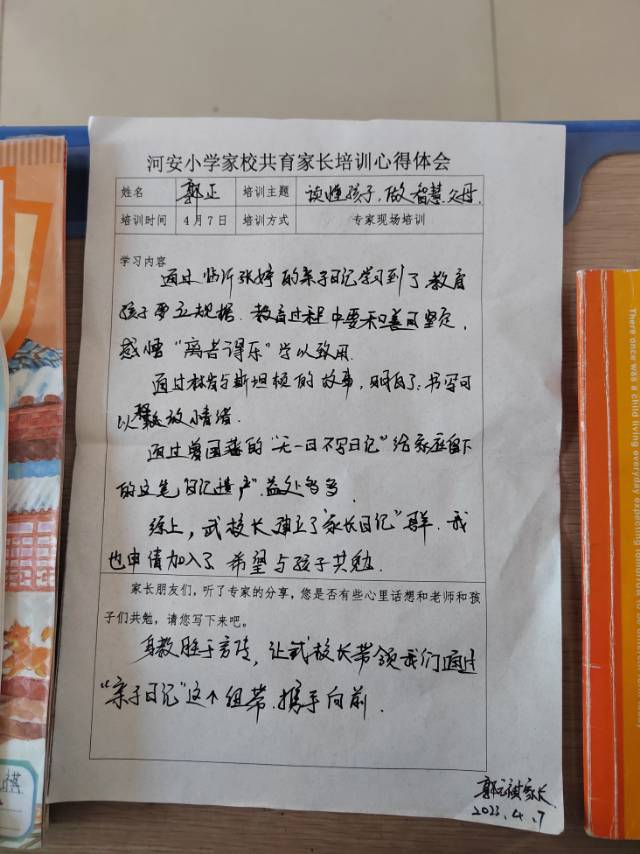 河安小学家校共育家长培训心得体会
姓名 郭正 培训主题 读懂孩子,做智慧父母.
培训时间 4月7日 培训方式 专家现场培训
学习内容
通过临沂张婷的亲子日记学习到了,教育
孩子要立规据.教育过程中要和善而坚定,
感悟“离者得乐”学以致用.
通过林肯与斯坦顿的故事,明白了:书写可
以释放情绪.
通过曾国藩的“无一日不写日记”给家庭留下
的这笔“日记遗产”.益处多多.
综上,武校长建立了“家长日记”群.我
也申请加入了 希望与孩子共勉.
家长朋友们,听了专家的分享,您是否有些心里话想和老师和孩
子们共勉,请您写下来吧。
身教胜于言传,让武校长带领我们通过
“亲子日记”这个纽带.携手向前.
家长
2023.4.7
There once was a child living everyday
棋